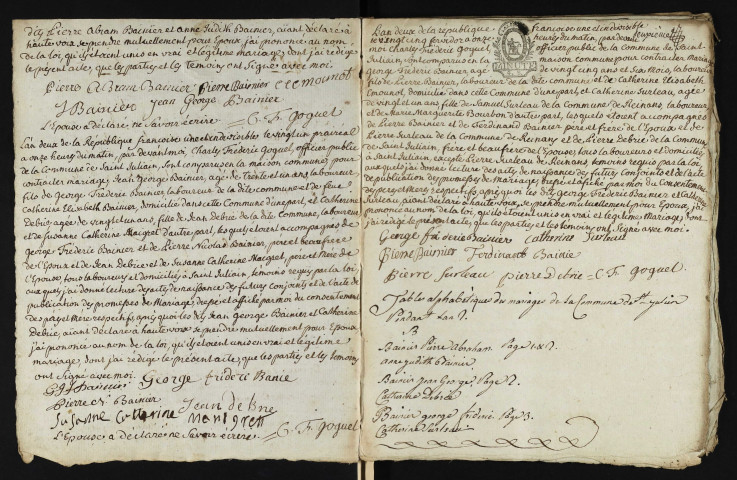 dits Pierre Abram Bainier et Anne Judith Bainier, aiant déclaré à
haute voix se prendre mutuellement pour Epoux, j'ai prononcé au nom
de la loi, qu'ils étoient unis en vrai et légitime mariage, dont j'ai rédigé
le présent acte, que les parties et les temoins ont Signé avec moi.
Pierre Abram Bainier Pierre Bainier
J Bainier jean George Bainier
L'Epouse a déclaré ne Savoir ecrire C. F. Goguel
L'an deux de la Republique françoise une et indivisible le vingt un prairéal
a onze heures du matin, par devant moi, Charles Frédéric Goguel, officier public
de la Commune de Saint Juliain, sont comparus en la maison commune, pour
contracter mariage, Jean George Bainier, agé de trente et un ans, laboureur
fils de George Fréderic Bainier, laboureur de la dite commune et de feue
Catherine Elisabeth Bainier, domicilié dans cette Commune d'une part, et Catherine
Debrie, agée de vingt et un ans, fille de Jean Debrie de la dite Commune, laboureur
et de Susanne Catherine Maigret d'autre part, lesquels étoient accompagnés de
George Fréderic Bainier et de Pierre Nicolas Bainier, pere et beaufrere
de l'Epoux et de Jean Debrie et de Susanne Catherine Maigret, pere et Mère de
l'Epouse, tous laboureurs et domiciliés à Saint Juliain, temoins requis par la loi,
auxquels j'ai donné lecture des actes de naissance des futurs Conjoints et de l'acte de
publication des promesses de Mariage, dressé et affiché par moi du consentement
des pere et Mere respectifs, après quoi les dits Jean George Bainier et Catherine
Debrie, aiant declaré à haute voix se prendre mutuellement pour Epoux,
j'ai prononcé au nom de la loi, qu'ils étoient unis en vrai et légitime
mariage, dont j'ai rédigé le présent acte, que les parties et les temoins
ont Signé avec moi.
George frideric Banie
Pierre N Bainier
Susanne Catherine Jean de Brie
L'Epouse a declaré ne Savoir ecrire C. F. Goguel
L'an deux de la republique françoise une et indivisible
le vingt cinq a onze heures du matin, par devant
moi Charles Frederic Goguel, officier public de la Commune de Saint
Juliain, sont comparus en la maison commune pour contracter Mariage
George Frederic Bainier, agé de vingt cinq ans et Six Mois, laboureur
fils de Pierre Bainier, laboureur de la dite Commune et de Catherine Elisabeth
Emounot, domicilié dans cette Commune d'une part, et Catherine Surleau, agée
de vingt et un ans fille de Samuel Surleau de la Commune de Reinans, laboureur
et de Marie Marguerite Bourbon d'autre part, lesquels étoient accompagnés
de Pierre Bainier et de Ferdinand Bainier pere et frere de l'Epoux et de
Pierre Surleau de la Commune de Remany et de Pierre Debrie de la Commune
de Saint Juliain, frere et beaufrere de l'Epouse, tous laboureurs et domiciliés
a Saint Juliain, excepté Pierre Surleau de Reinans, temoins requis par la loi
auxquels j'ai donné lecture des actes de naissance des futurs Conjoints et de l'acte
de publication des promesses de Mariage, dressé et affiché par moi du Consentement
des pere et Mere respectifs, après quoi les dits George Fréderic Bainier et Catherine
Surleau, aiant déclaré à haute voix, se prendre mutuellement pour Epoux, j'ai
prononcé au nom de la loi, qu'ils étoient unis en vrai et légitime Mariage, dont
j'ai rédigé le présent acte, que les parties et les temoins ont Signé avec moi.
George frederic Bainier Catherine Surleau
Pierre Bainier Ferdinand Bainie
Pierre Surleau pierre Debrie C. F. Goguel
Table alphabétique des mariages de la Commune de St Julien
Pendant L'an 2
B
Bainier Pierre abraham Page 1 & 2.
anne judith Bainier.
Bainier jean George, Page 2.
Catherine Debrie
Bainier george frederic Page 3.
Catherine Surleau